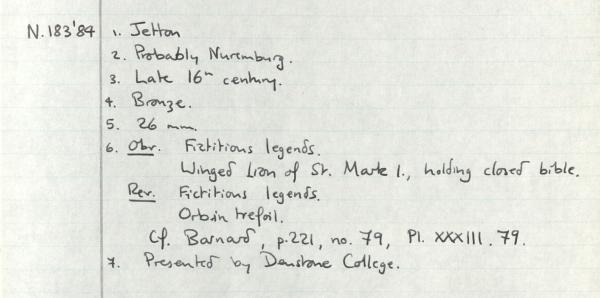 N.183'84 1. Jetton
2. Probably Nuremburg.
3. Late 16th century.
4. Bronze.
5. 26 mm.
6. Obv. Fictitious legends.
Winged Lion of St. Mark l., holding closed bible.
Rev. Fictitious legends.
Orb in trefoil.
Cf. Barnard, p.221, no. 79, Pl. XXXIII. 79.
7. Presented by Denstone College.